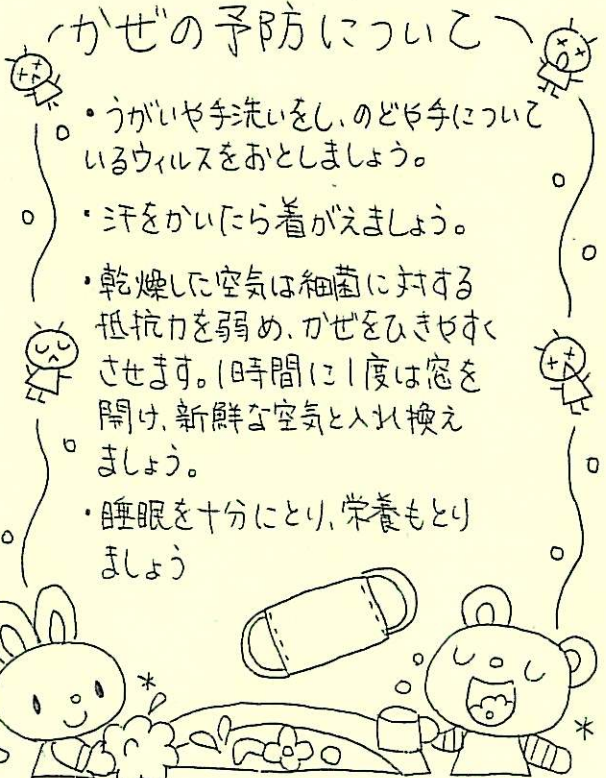 かぜの予防について
・うがいや手洗いをし、のどや手について
いるウィルスをおとしましょう。
・汗をかいたら着がえましょう。
・乾燥した空気は細菌に対する
抵抗力を弱め、かぜをひきやすく
させます。1時間に1度は窓を
開け、新鮮な空気と入れ換え
ましょう。
・睡眠を十分にとり、栄養もとり
ましょう